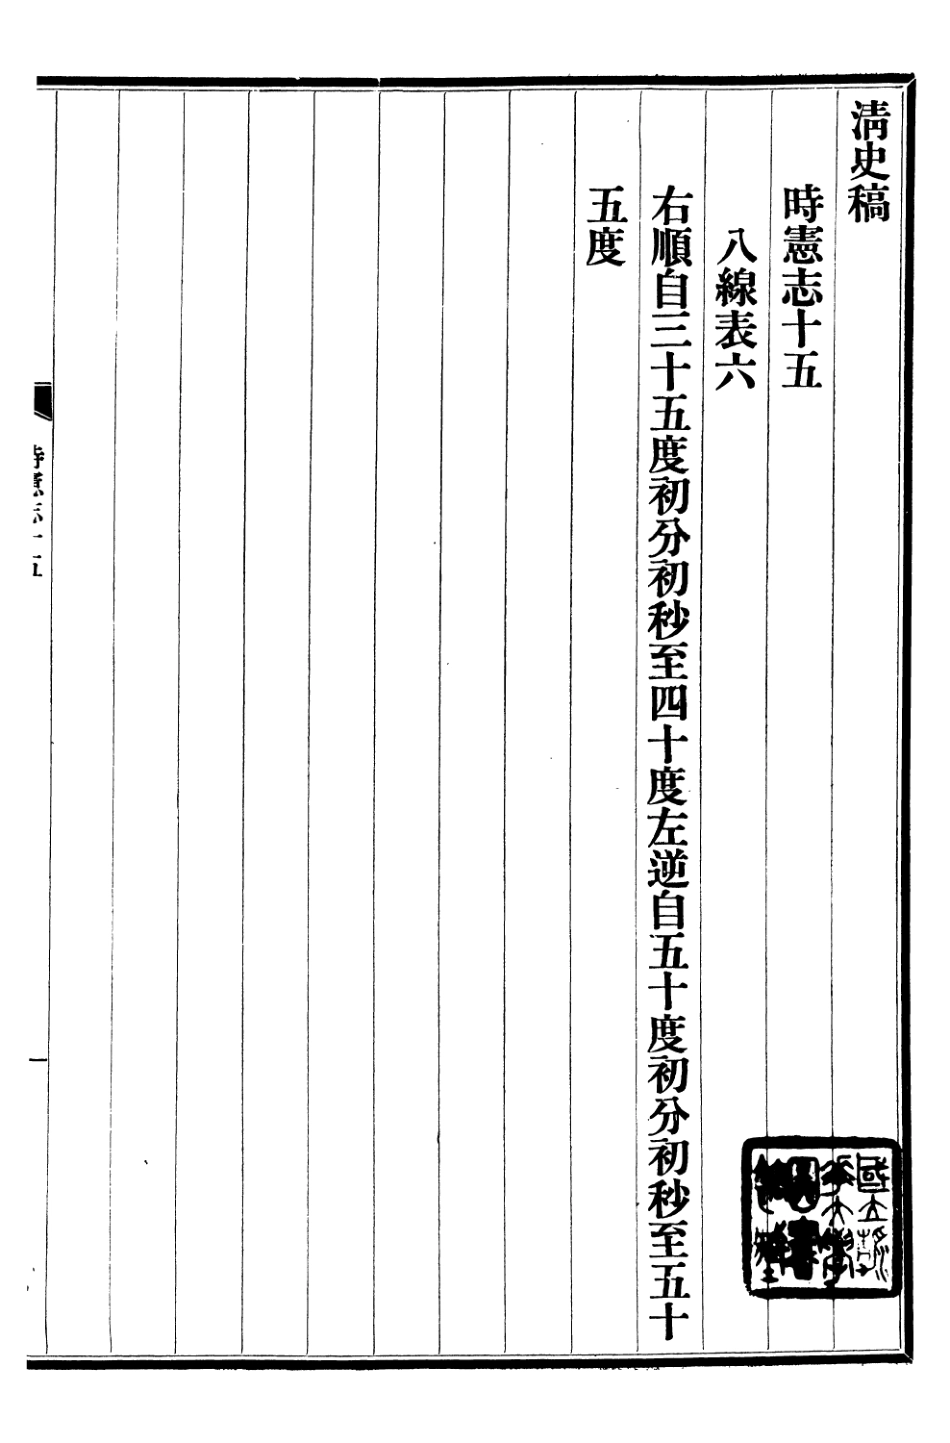 清史稿
時憲志十五
八線表六
右順自三十五度初分初秒至四十度左逆自五十度初分初秒至五十
五度
時憲志十五
一
國立